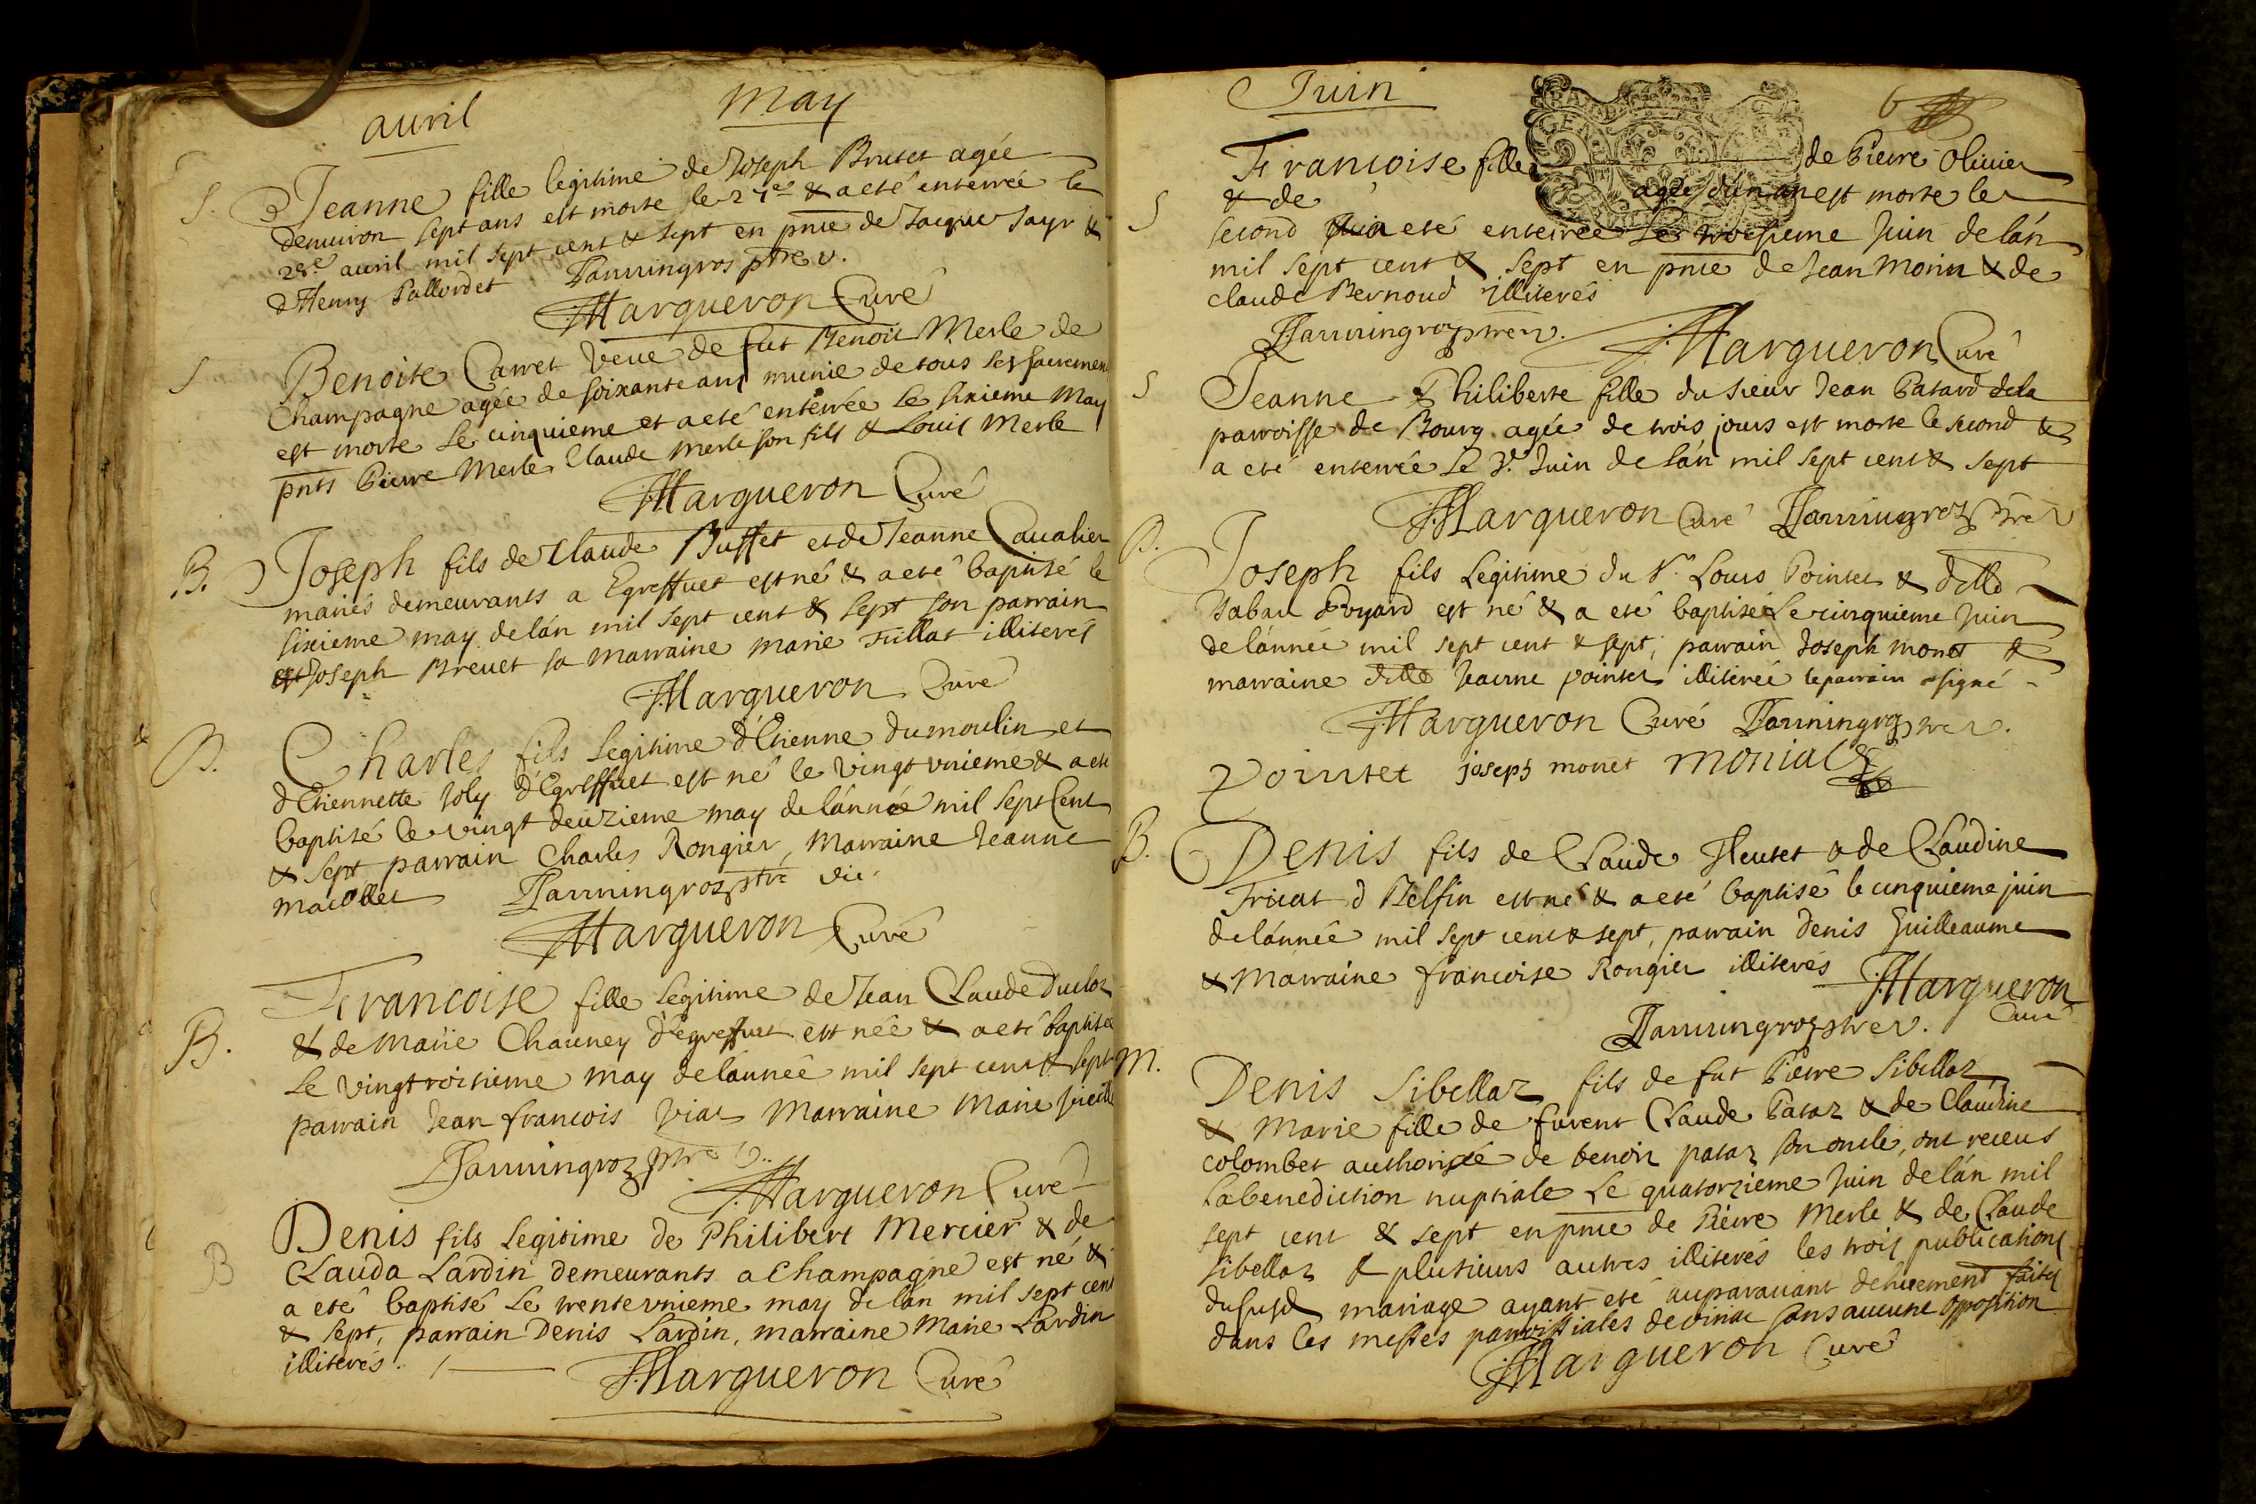 avril
May
S.
Jeanne fille legitime de Joseph Brutet agée
denuiron sept ans est morte le 27e & a eté enterrée le
28e avril mil sept cent & sept en pnce de Jacque Jayr &
d'Henry Pallordet Janningros ptre v.
Margueron Curé
S
Benoite Carret veue de fut Benoit Merle de
Champagne agée de soixante ans munie de tous les sacremens
est morte le cinquieme et a eté enterrée le sixieme May
pnts Pierre Merle Claude Merle son fils & Louis Merle
Margueron Curé
B.
Joseph fils de Claude Buffet et de Jeanne Caualier
mariés demeurants a Egreffuet est né & a eté baptisé le
sixieme may de lán mil sept cent & sept son parrain
est Joseph Brevet sa Marraine Marie Fillat illiterés
Margueron Curé
B.
Charles fils legitime d'Etienne Dumoulin et
d'Etiennette Joly d'Egreffuet est né le vingt vnieme & a eté
baptisé le vingt deuzieme may de lánnée mil sept Cent
& sept parrain Charles Rongier, Marraine Jeanne
Macollet Janningros ptre vic.
Margueron Curé
B.
Francoise fille legitime de Jean Claude Ducloz
& de Marie Chauney d'egreffuet est née & a eté baptisée
le vingt troisieme may de lánnée mil sept cent & sept
parrain Jean francois Viat Marraine Marie
Janningroz ptre v.
Margueron Curé
B
Denis fils legitime de Philibert Mercier & de
Clauda Lardin demeurants a Champagne est né &
a eté baptisé le trentevnieme may de lan mil sept cent
& sept, parrain Denis Lardin, marraine Marie Lardin
illiterés.
Margueron Curé
Juin
6
Francoise fille de Pierre Oliuier
S
& de agée d'un an est morte le
second & a eté enterrée le troisieme Juin de lán
mil sept cent & sept en pnce de Jean Morin & de
Claude Bernoud illiterés
Janningroz ptre v. Margueron Curé
S
Jeanne Philiberte fille du sieur Jean Patard de la
parroisse de Bourg agée de trois jours est morte le second &
a eté enterrée le 3e Juin de lán mil sept cent & sept
Margueron Curé Janningroz ptre v
B.
Joseph fils legitime du Sr. Louis Pointet & dlle
Isabau Poyard est né & a eté baptisé le cinquieme Juin
de lánnée mil sept cent & sept, parrain Joseph Monet &
marraine dlle Jeanne pointet illiterée le parrain a signé
Margueron Curé Janningroz ptre v.
Pointet joseph monet monial
B.
Denis fils de Claude Heutet & de Claudine
Fricat d Belfin est né & a eté baptisé le cinquieme juin
de lánnée mil sept cent & sept, parrain Denis Guilleaume
& Marraine francoise Rongier illiterés Margueron
Janningroz ptre v. Curé
M.
Denis Sibellaz fils de fut Pierre Sibellaz
& Marie fille de furent Claude Pataz & de Claudine
colombet authorizée de benoit pataz son oncle, ont receus
la benediction nuptiale le quatorzieme Juin de lán mil
sept cent & sept en pnce de Pierre Merle & de Claude
sibellaz & plusieurs autres illiterés les trois publications
dususd mariage ayant eté auparauant dehuement faites
dans les messes parroissiales de viriat sans aucune opposition
Margueron Curé